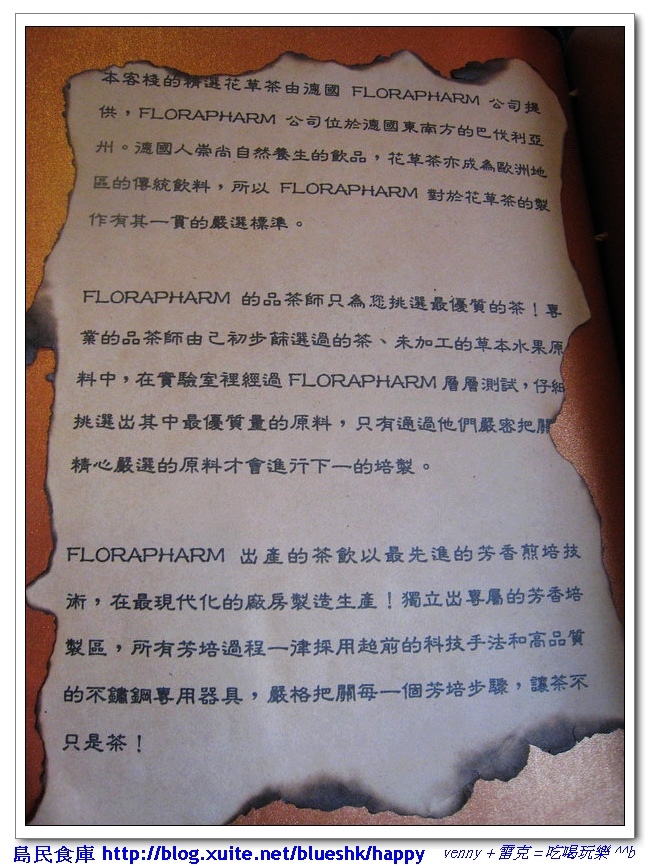 本客棧的精選花草茶由德國 FLORAPHARM 公司提
供，FLORAPHARM 公司位於德國東南方的巴伐利亞
州。德國人崇尚自然養生的飲品，花草茶亦成為歐洲地
區的傳統飲料，所以 FLORAPHARM 對於花草茶的製
作有其一貫的嚴選標準。
FLORAPHARM 的品茶師只為您挑選最優質的茶！專
業的品茶師由已初步篩選過的茶、未加工的草本水果原
料中，在實驗室裡經過 FLORAPHARM 層層測試，仔細
挑選出其中最優質量的原料，只有通過他們嚴密把關
精心嚴選的原料才會進行下一的培製。
FLORAPHARM 出產的茶飲以最先進的芳香煎培技
術，在最現代化的廠房製造生產！獨立出專屬的芳香培
製區，所有芳培過程一律採用超前的科技手法和高品質
的不鏽鋼專用器具，嚴格把關每一個芳培步驟，讓茶不
只是茶！
島民食庫 http://blog.xuite.net/blueshk/happy venny＋雷克＝吃喝玩樂 ^^b